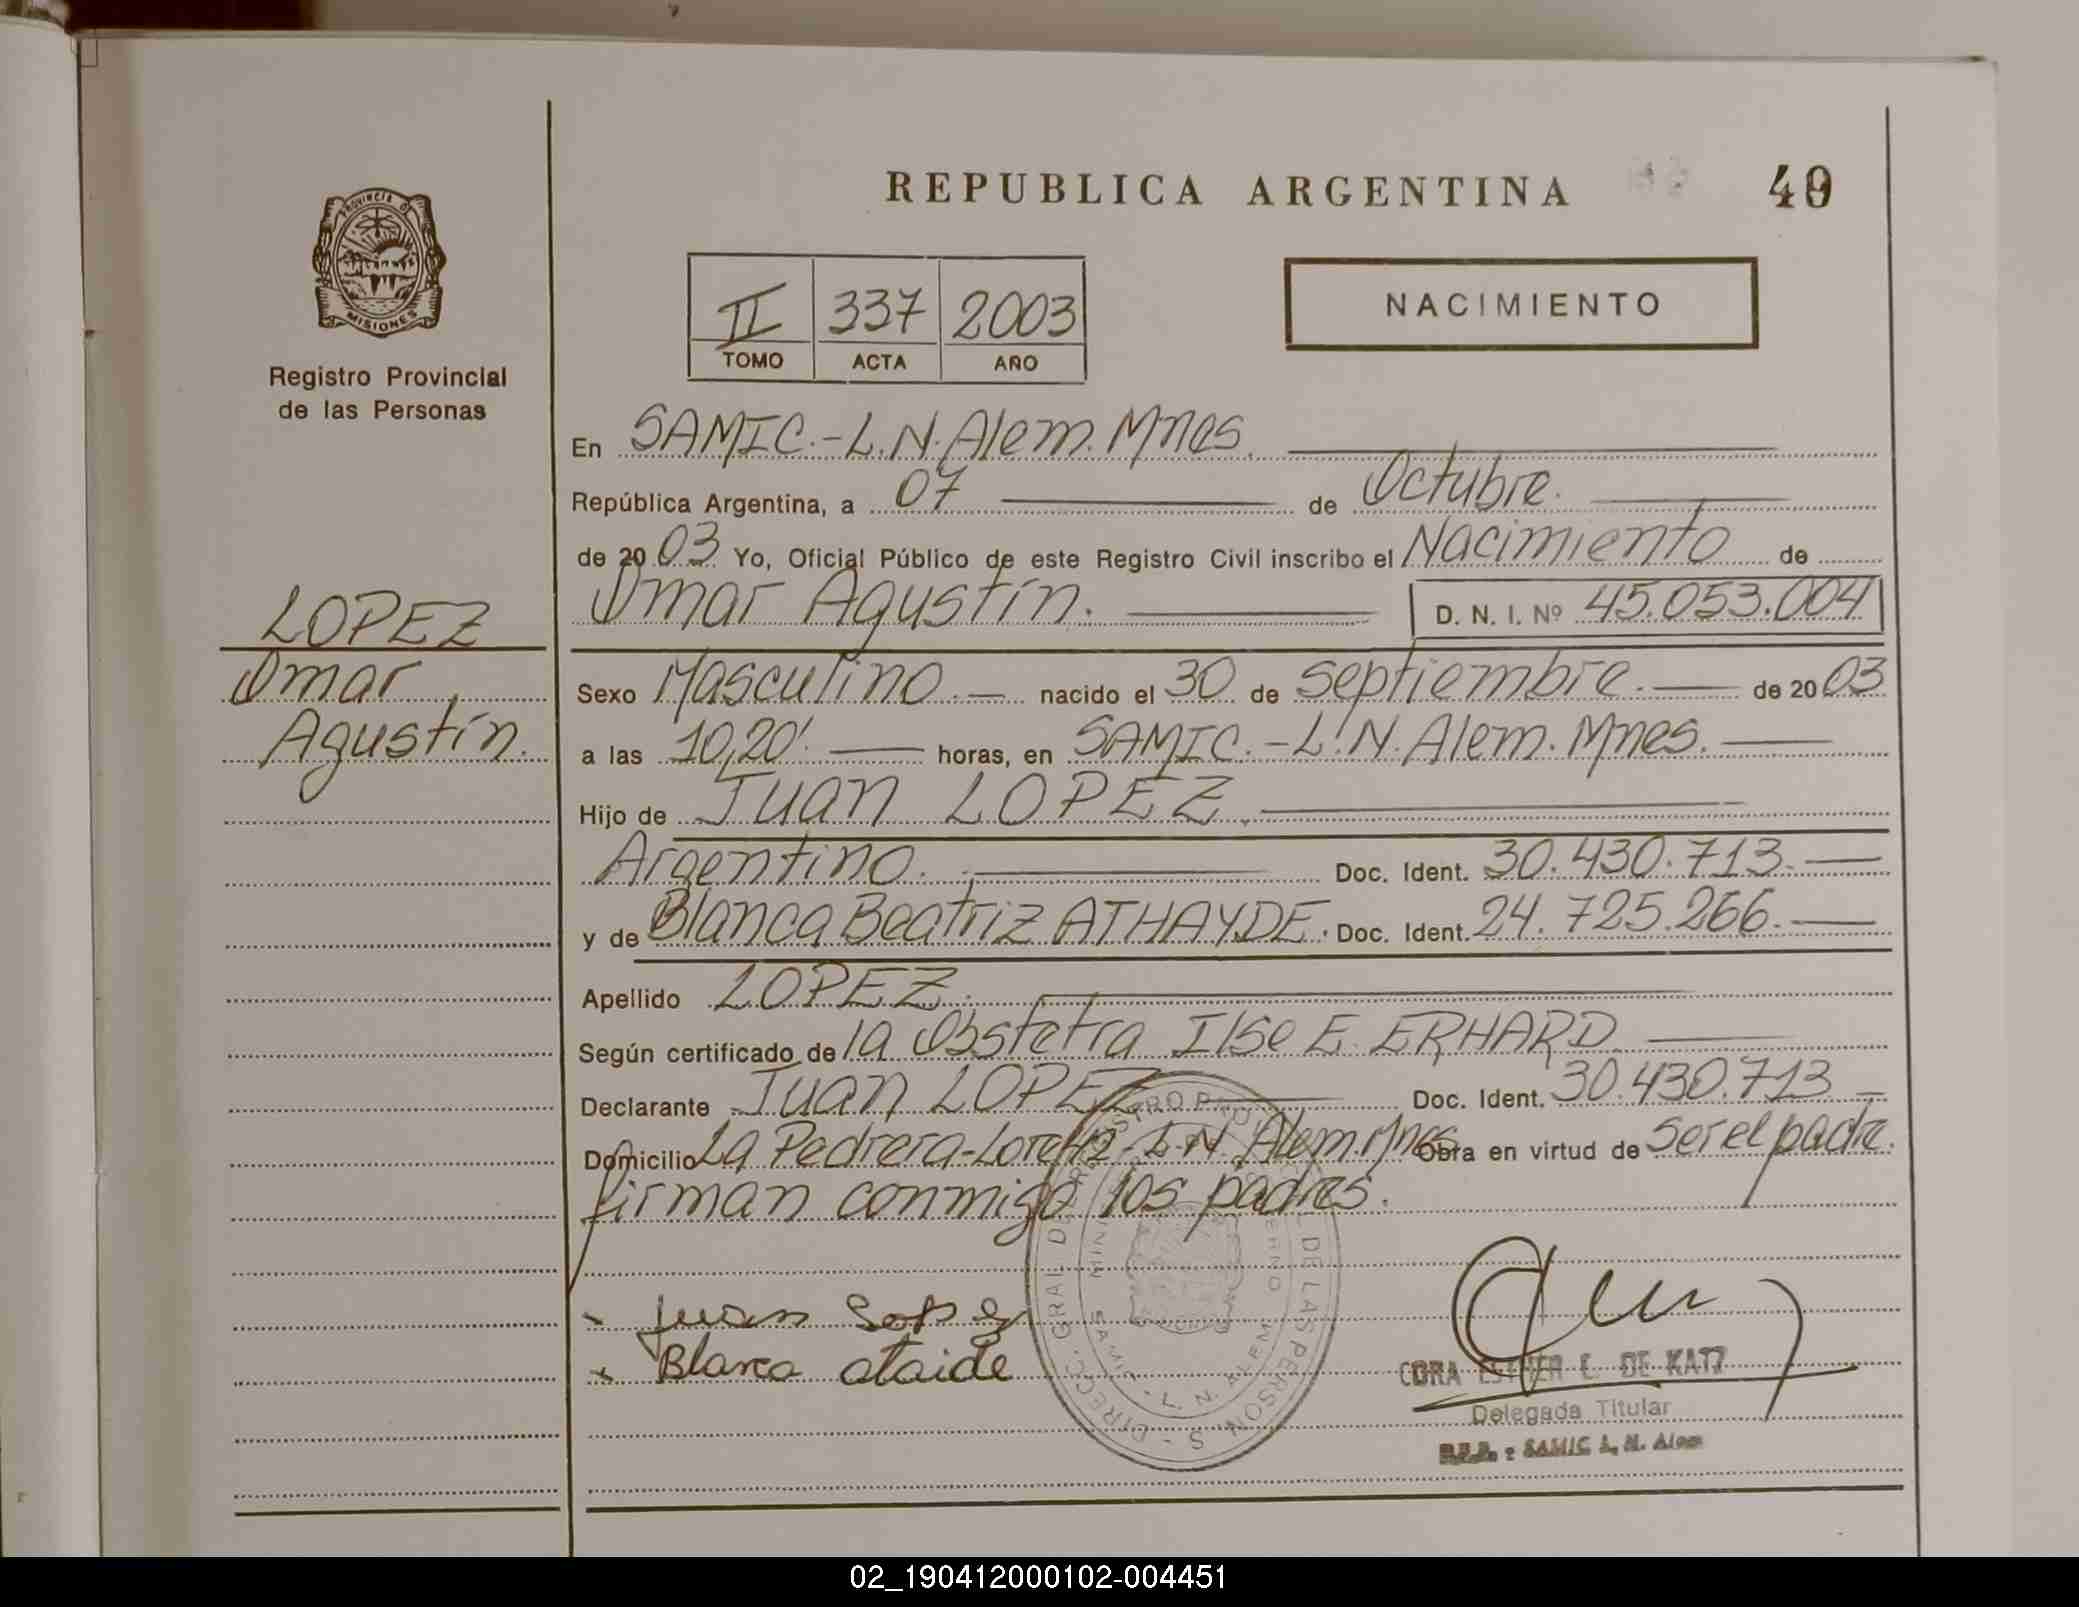 REPUBLICA ARGENTINA
49
PROVINCIA DE
MISIONES
Registro Provincial
de las Personas
II 337 2003
TOMO ACTA AÑO
NACIMIENTO
En SAMIC.-L.N.Alem.Mnes.
República Argentina, a 07 de Octubre.
de 20 03 Yo, Oficial Público de este Registro Civil inscribo el Nacimiento de
Omar Agustín. D. N. I. Nº 45.053.004
LOPEZ
Omar
Agustín.
Sexo Masculino.- nacido el 30 de septiembre.- de 20 03
a las 10,20'. horas, en SAMIC.-L.N.Alem.Mnes.
Hijo de Juan LOPEZ.
Argentino. Doc. Ident. 30.430.713.-
y de Blanca Beatriz ATHAYDE. Doc. Ident. 24.725.266.-
Apellido LOPEZ.
Según certificado de la Obstetra Ilse E. ERHARD
Declarante Juan LOPEZ Doc. Ident. 30.430.713
Domicilio La Pedrera-Loreto-L.N.Alem.Mnes. Obra en virtud de ser el padre.
firman conmigo los padres.
Juan Lopez
Blanca ataide
DE LAS PERSON S - DIRECC. GRAL. DE
SAMIC - L. N. ALEM
CORA ESTHER E. DE KATZ
Delegada Titular
R.P.P. : SAMIC L. N. Alem
02_190412000102-004451